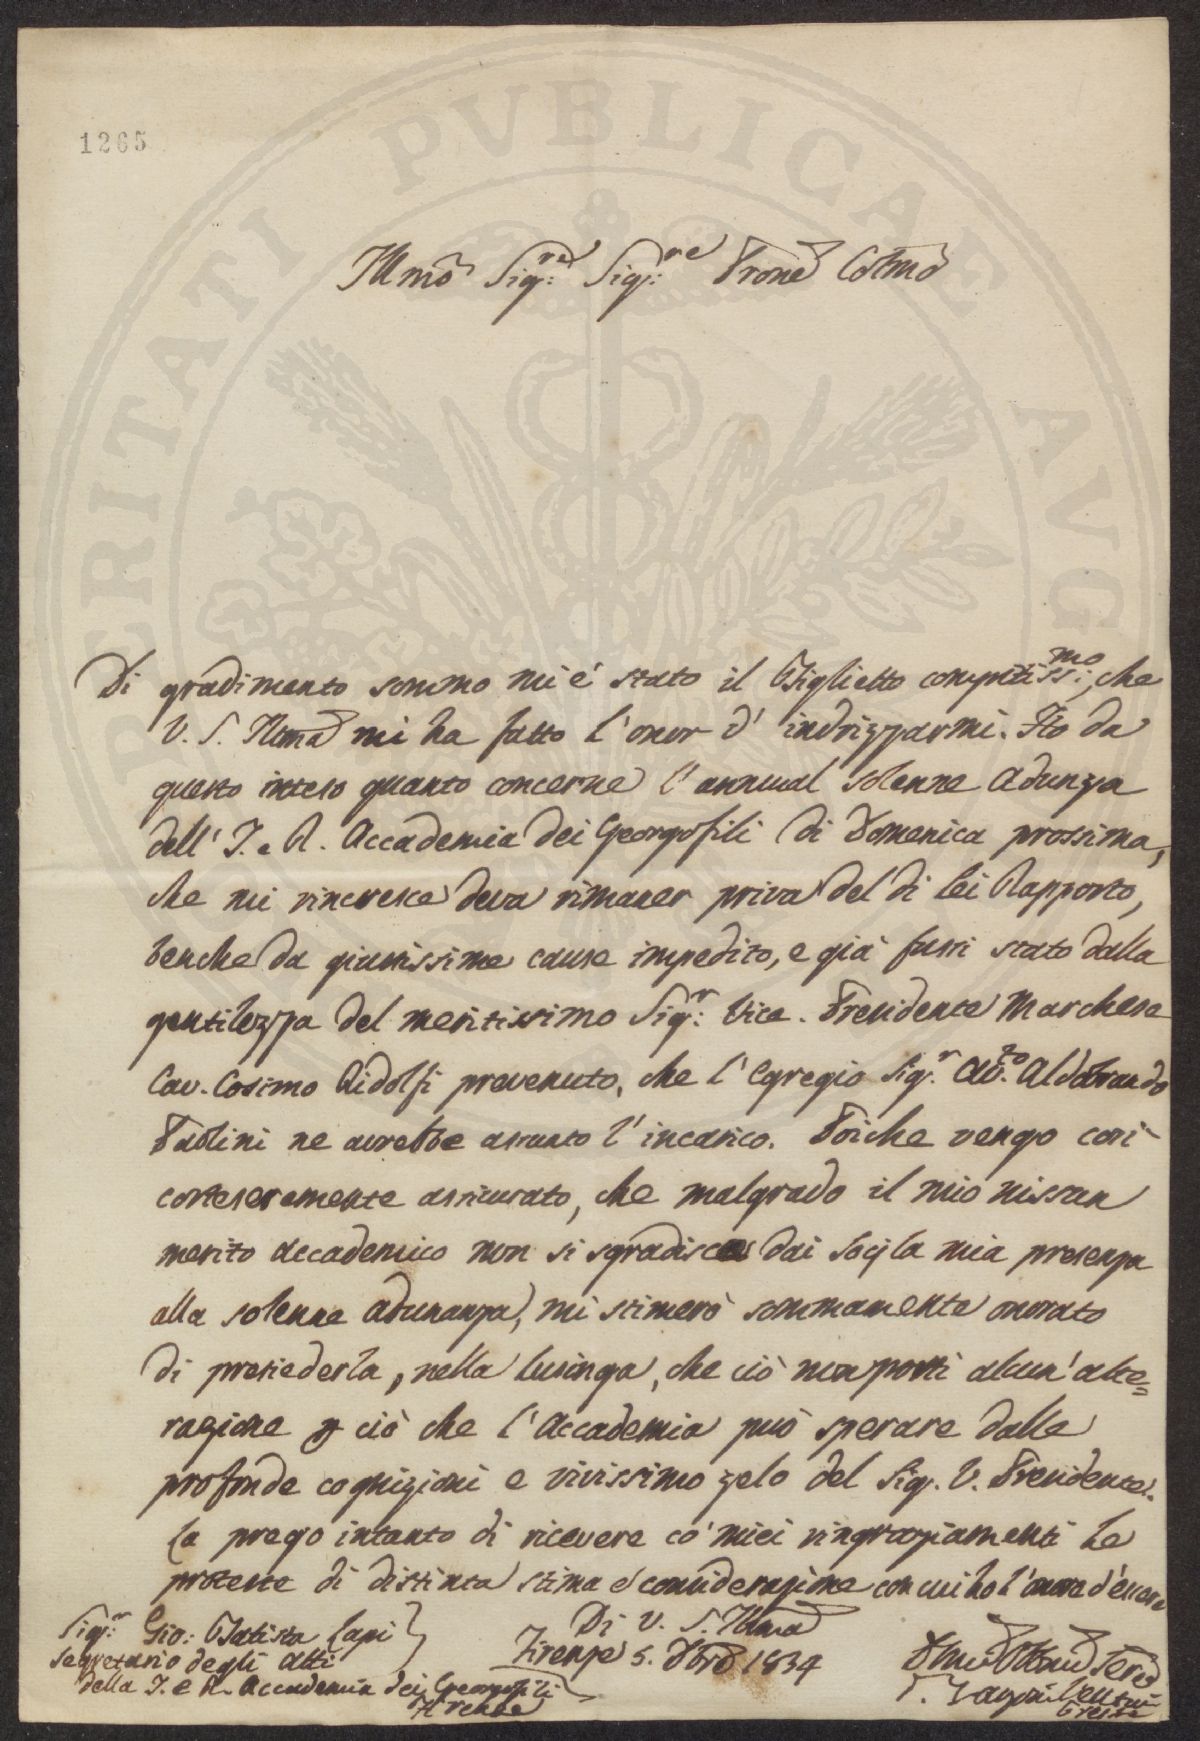 1265
Illmo Sig:re Sig:re Prone Colmo
Di gradimento sommo mi é stato il Biglietto compitiss:mo, che
V. S. Illma mi ha fatto l'onor d'indrizzarmi. Ho da
questo inteso quanto concerne l'annual solenne Adunza
dell'I. e R. Accademia dei Georgofili di Domenica prossima,
che mi rincresce deva rimaner priva del di Lei Rapporto,
benche da giustissime cause impedito, e già fussi stato dalla
gentilezza del meritissimo Sig:r Vice-Presidente Marchese
Cav. Cosimo Ridolfi prevenuto, che l'Egregio Sig.r Avto. Aldobrando
Paolini ne avrebbe assunto l'incarico. Poiche vengo così
cortesemente assicurato, che malgrado il mio nissun
merito Accademico non si sgradisca dai Socj la mia presenza
alla solenne adunanza, mi stimerò sommamente onorato
di presiederla, nella lusinga, che ciò non porti alcun'alte=
razione a ciò che l'Accademia può sperare dalle
profonde cognizioni e vivissimo zelo del Sig. V. Presidente.
La prego intanto di ricevere co' miei ringraziamenti le
proteste di distinta stima e considerazione con cui ho l'onore d'essere
Di V. S. Illma
Sig:r Gio: Batista Lapi
Segretario degli Atti
della I. e R. Accademia dei Georgofili
Firenze
Firenze 5. 1834